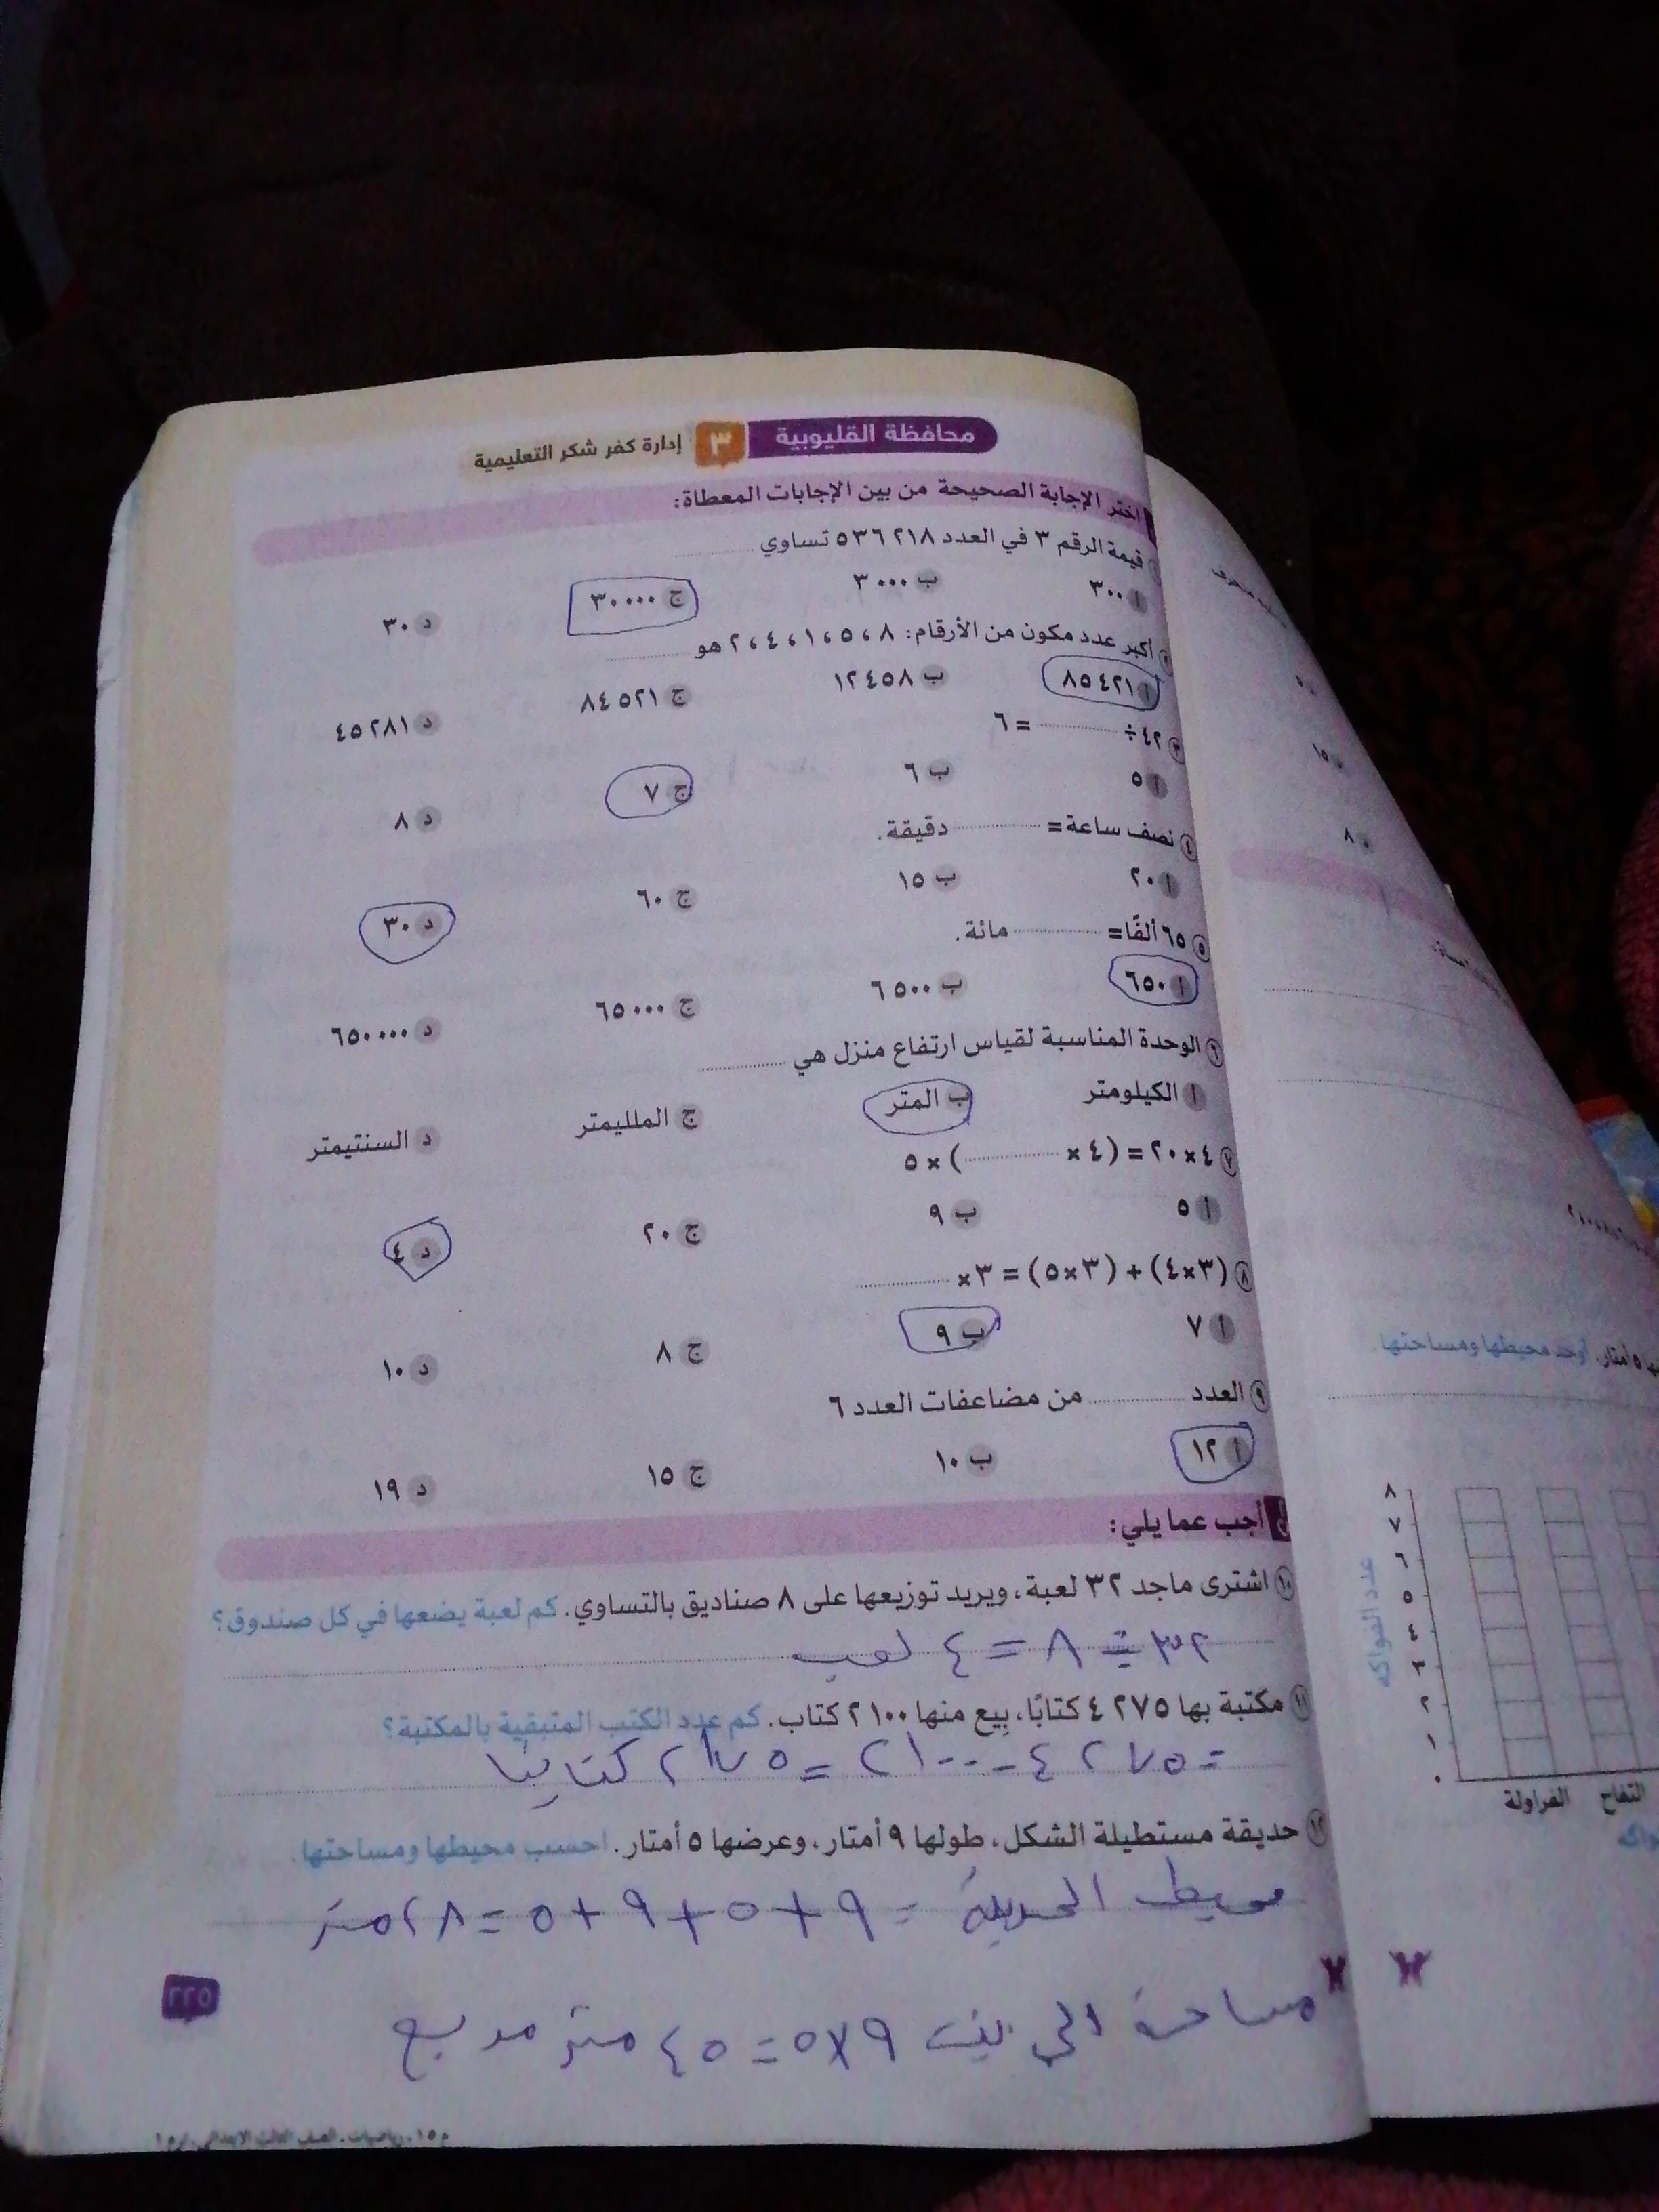 محافظة القليوبية ٣ إدارة كفر شكر التعليمية
اختر الإجابة الصحيحة من بين الإجابات المعطاة:
قيمة الرقم ٣ في العدد ٥٣٦٢١٨ تساوي
أ ٣٠٠ ب ٣٠٠٠ ج ٣٠٠٠٠ د ٣٠
٢ أكبر عدد مكون من الأرقام: ٨ ، ٥ ، ١ ، ٤ ، ٢ هو
أ ٨٥٤٢١ ب ١٢٤٥٨ ج ٨٤٥٢١ د ٤٥٢٨١
٣ ٤٢ ÷ ............ = ٦
أ ٥ ب ٦ ج ٧ د ٨
٤ نصف ساعة = ............ دقيقة.
أ ٢٠ ب ١٥ ج ٦٠ د ٣٠
٥ ٦٥ ألفًا = ............ مائة.
أ ٦٥٠ ب ٦٥٠٠ ج ٦٥٠٠٠ د ٦٥٠٠٠٠
٦ الوحدة المناسبة لقياس ارتفاع منزل هي ............
أ الكيلومتر ب المتر ج الملليمتر د السنتيمتر
٧ ٤ × ٢٠ = (٤ × ............) × ٥
أ ٥ ب ٩ ج ٢٠ د ٤
٨ (٣×٤) + (٣×٥) = ٣× ............
أ ٧ ب ٩ ج ٨ د ١٠
٩ العدد ............ من مضاعفات العدد ٦
أ ١٢ ب ١٠ ج ١٥ د ١٩
أجب عما يلي:
١٠ اشترى ماجد ٣٢ لعبة، ويريد توزيعها على ٨ صناديق بالتساوي. كم لعبة يضعها في كل صندوق؟
٣٢ ÷ ٨ = ٤ لعب
١١ مكتبة بها ٤٢٧٥ كتابًا، بِيع منها ٢١٠٠ كتاب. كم عدد الكتب المتبقية بالمكتبة؟
= ٤٢٧٥ - ٢١٠٠ = ٢١٧٥ كتابا
١٢ حديقة مستطيلة الشكل، طولها ٩ أمتار، وعرضها ٥ أمتار. احسب محيطها ومساحتها.
محيط الحديقة = ٩ + ٥ + ٩ + ٥ = ٢٨ متر
مساحة ٩×٥ = ٤٥ متر مربع
٢٢٥
أمتار. أوجد محيطها ومساحتها.
عدد الفواكه
٨
٧
٦
٥
٤
٣
٢
١
٠
التفاح الفراولة